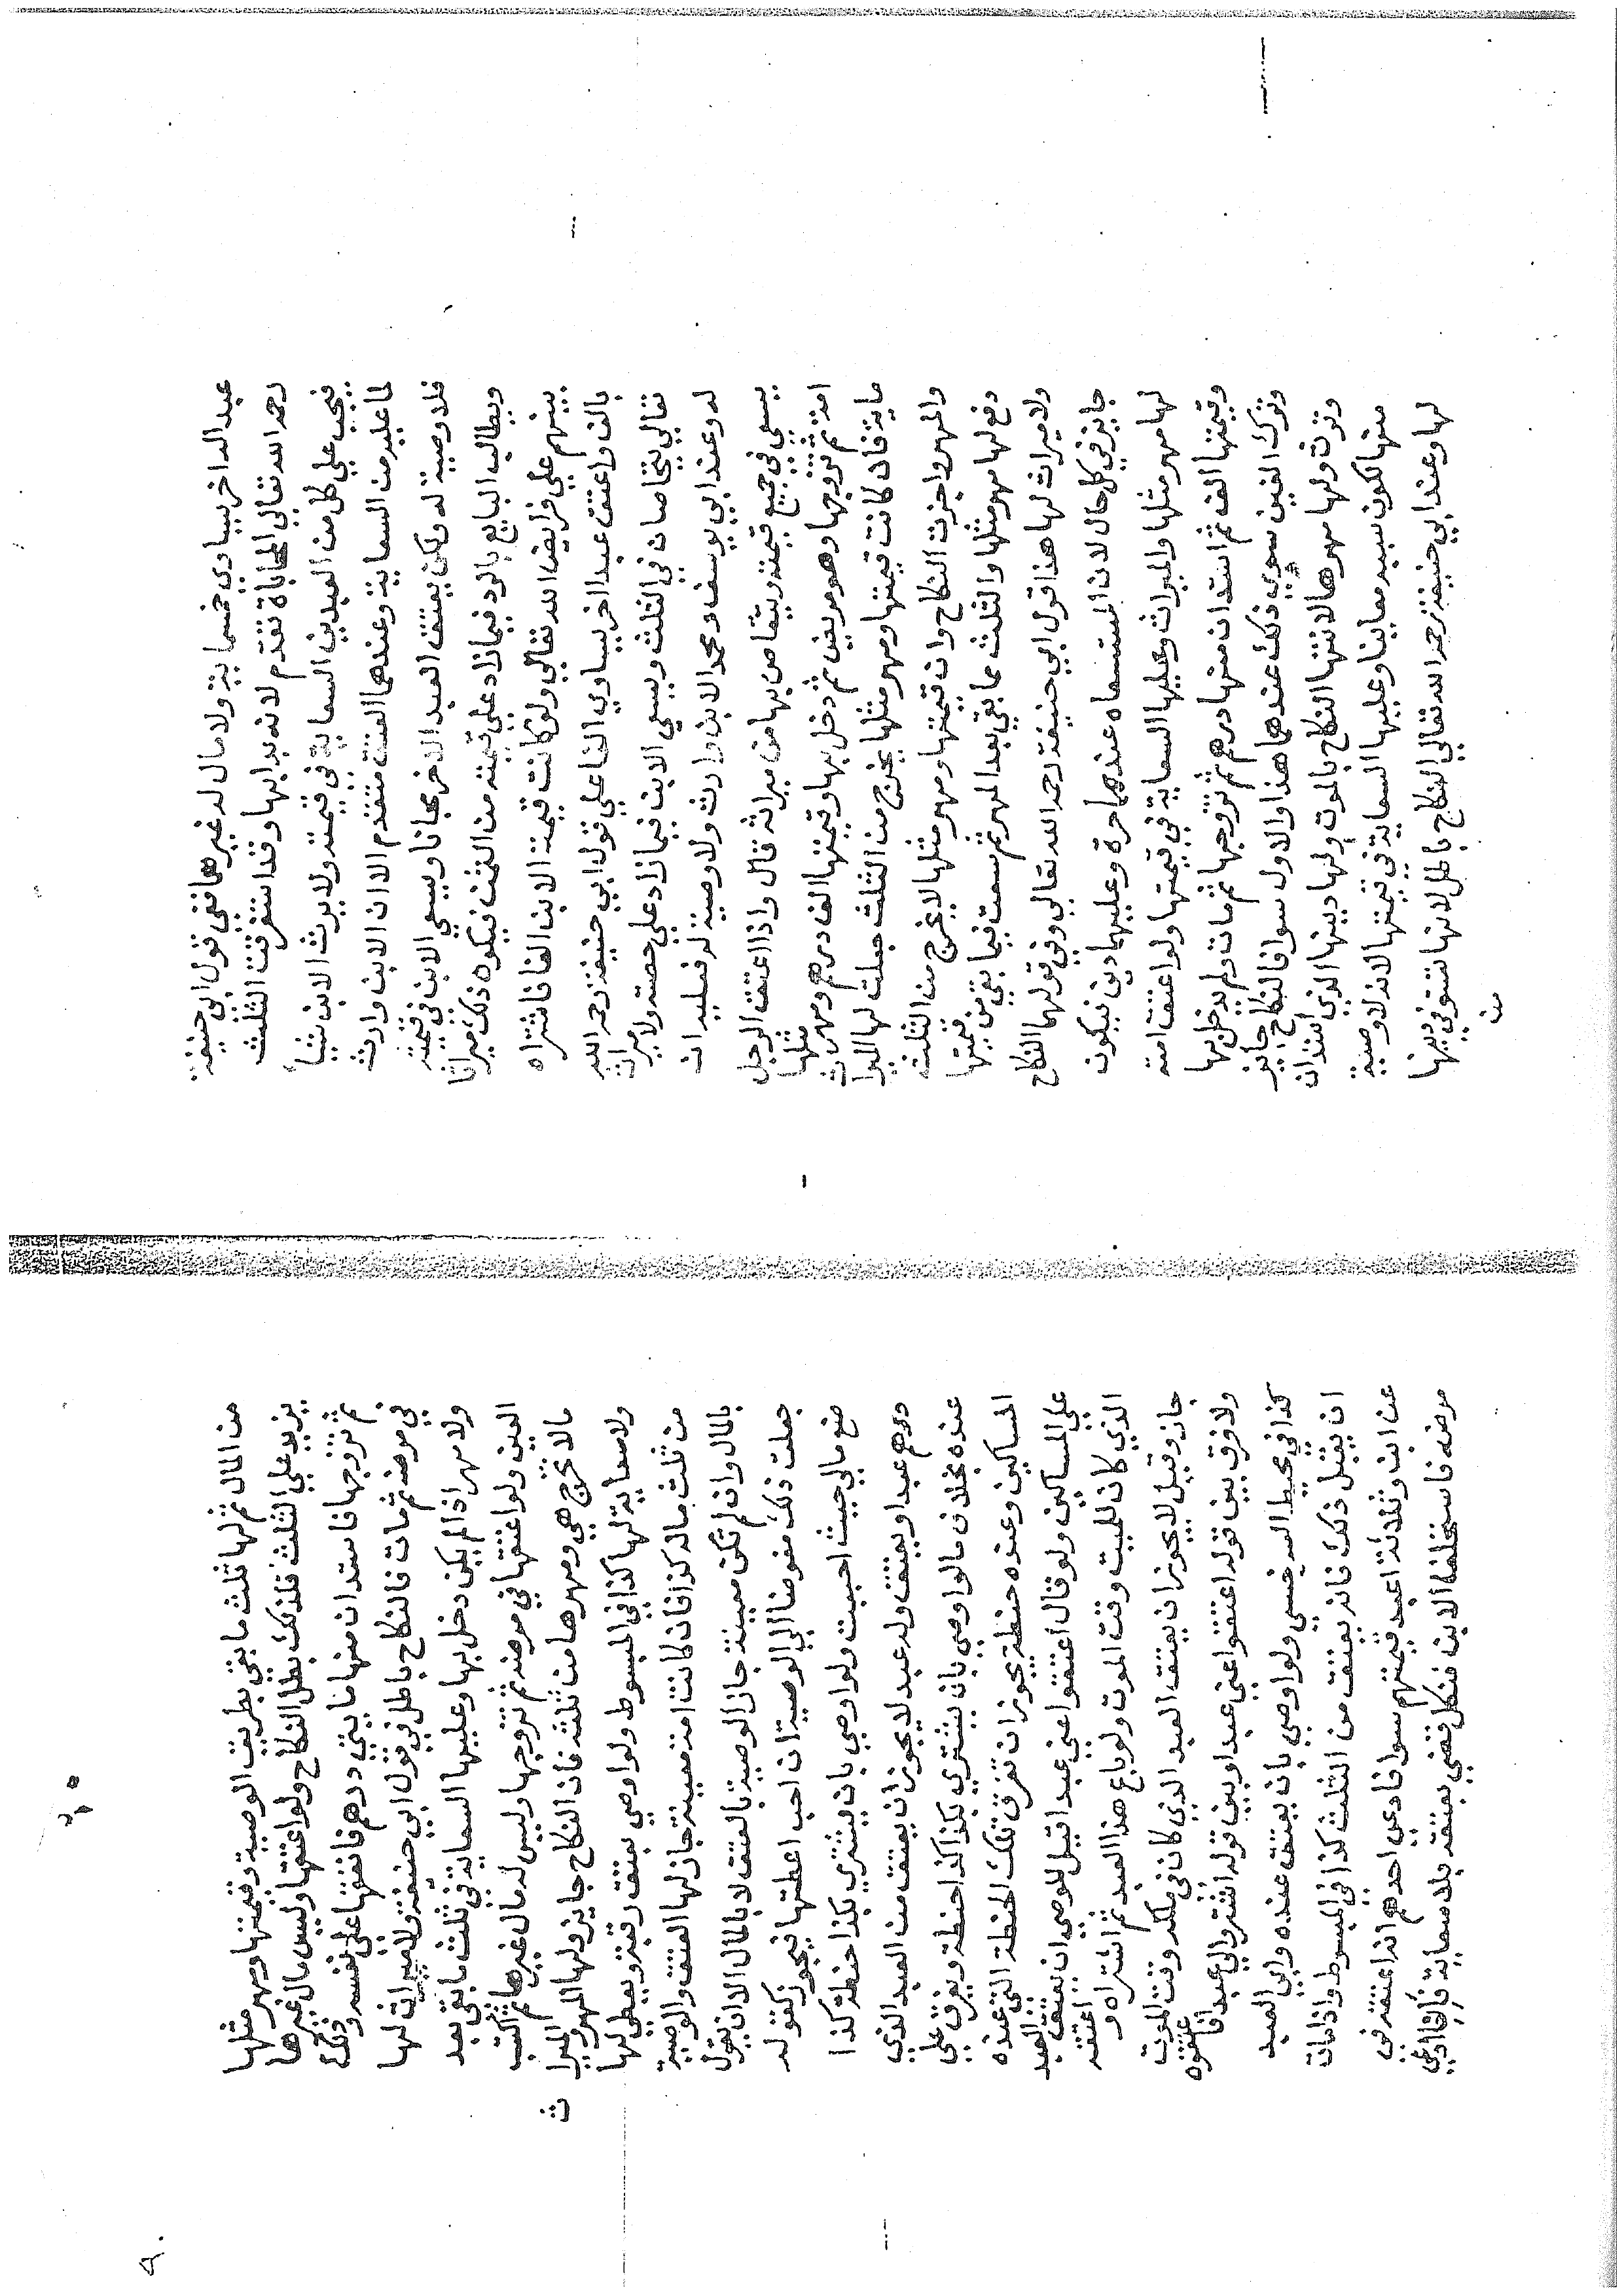 عبدا اخر يساوي خمسماية ولا مال له غيرهما ففي قول ابي حنيفة
رحمه الله تعالي المحاباة تقدم لانه بدا بها وقد استغرقت الثلث
فيجب علي كل من العبدين السعاية في قيمته ولا يرث الابن شيا
لما عليه من السعاية وعندهما العتق متقدم الا ان الابن وارث
فلا وصية له ولكن يعتق العبد الاخر مجانا ويسعي الابن في قيمته
ويطالب البايع بالرد فيما زاد علي قيمته من الثمن فيكون ذلك ميراثا
بينهم علي فرايض الله تعالي ولو كانت قيمة الابن الفا فاشتراه
بالف واعتق عبدا اخر يساوي الفا علي قول ابي حنيفة رحمه الله
تعالي يتحاصان في الثلث ويسعي الابن فيما زاد علي حصته ولا ميراث
له وعند ابي يوسف ومحمد الابن وارث ولا وصية له فعليه ان
يسعي في جميع قيمته ويتقاص بها من ميراثه قال واذا اعتق الرجل
امته ثم تزوجها وهو مريض ثم دخل بها وقيمتها الف درهم ومهر مثلها
ماية فان كانت قيمتها ومهر مثلها يخرج من الثلث جعلت لها الميراث
والمهر واجزت النكاح وان قيمتها ومهر مثلها لا يخرج من الثلثه
دفع لها مهر مثلها والثلث مما بقي بعد المهر ثم سعت فيما بقي من قيمتها
ولا ميراث لها هذا قول ابي حنيفة رحمه الله تعالي وفي قولهما النكاح
جايز في كل حال لان المستسعاه عندهما حرة وعليها دين فيكون
لها مهر مثلها والميراث وعليها السعاية في قيمتها ولو اعتق امته
وقيمتها الف ثم استدان منها درهم ثم تزوجها ثم مات ولم يدخل بها
وترك الفين سوي ذلك عندهما هذا والاول سوا فالنكاح جايز
وترث ولها مهرها لانتها النكاح بالموت ولها دينها الذي استدان
منها لكون سببه معاينا وعليها السعاية في قيمتها لانه لا وصية
لها وعند ابي حنيفة رحمه الله تعالي النكاح باطل لانها تستوفي دينها
من
من المال ثم لها ثلث ما بقي بطريق الوصية وقيمتها ومهر مثلها
يزيد علي الثلث فلذلك بطل النكاح ولو اعتقها وليس مال غيرها
ثم تزوجها فاستدان منها مايتي درهم فانفقها علي نفسه وذلك
في مرضه ثم مات فالنكاح باطل في قول ابي حنيفة ولا ميراث لها
ولا مهر اذا لم يكن دخل بها وعليها السعاية في ثلث ما بقي بعد
العين ولو اعتقها في مرضه ثم تزوجها وليس له مال غيرها ثم اكتسب
مالا تخرج هي ومهرها من ثلثه فان النكاح جايز ولها المهر والميراث
ولا سعاية لها كذا في المبسوط ولو اوصي بعتق رقبة ويعطي لها
من ثلث ماله كذا فان كانت امة معينة جاز لها العتق والوصية
بالمال وان لم تكن معينة جاز الوصية بالعتق لا بالمال الا ان يقول
جعلت ذلك مفوضا الي الوصية ان احب اعطتها فيجوز كقوله
ضع مالي حيث احببت ولو اوصي بان يشتري بكذا حنطة كذا
درهم عبدا ويعتق وله عبد لا يجوز ان يعتق من العبد الذي
عنده بخلاف مالو اوصي بان يشتري بكذا كذا حنطة ويفرق علي
المساكين وعنده حنطة يجوز ان تفرق تلك الحنطة التي عنده
علي المساكين ولو قال اعتقوا عني عبدا قيل للوصي ان يعتق العبد
الذي كان للميت وقت الموت ولو باع هذا العبد ثم اشتراه واعتقه
جاز وقيل لا يجوز ان يعتق العبد الذي كان في ملكه وقت الموت
ولا فرق بين قوله اعتقوا عني عبدا وبين قوله اشتروا لي عبدا فاعتقوه
كذا في محيط السرخسي ولو اوصي بان يعتق عنده وابي العبد
ان يقبل ذلك فانه يعتق من الثلث كذا في المبسوط واذا مات
عن ابن وثلاثة اعبد قيمتهم سوا فادعي احدهم انه اعتقه في
مرضه فاستخلف الابن فنكل فقضي بعتقه بلا سعاية فان ادعي